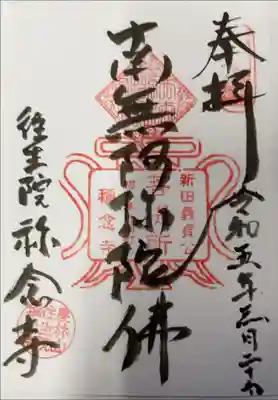 奉拝
令和五年三月二十九
南無阿弥陀佛
新田義貞公
称念寺
往生院
称念寺